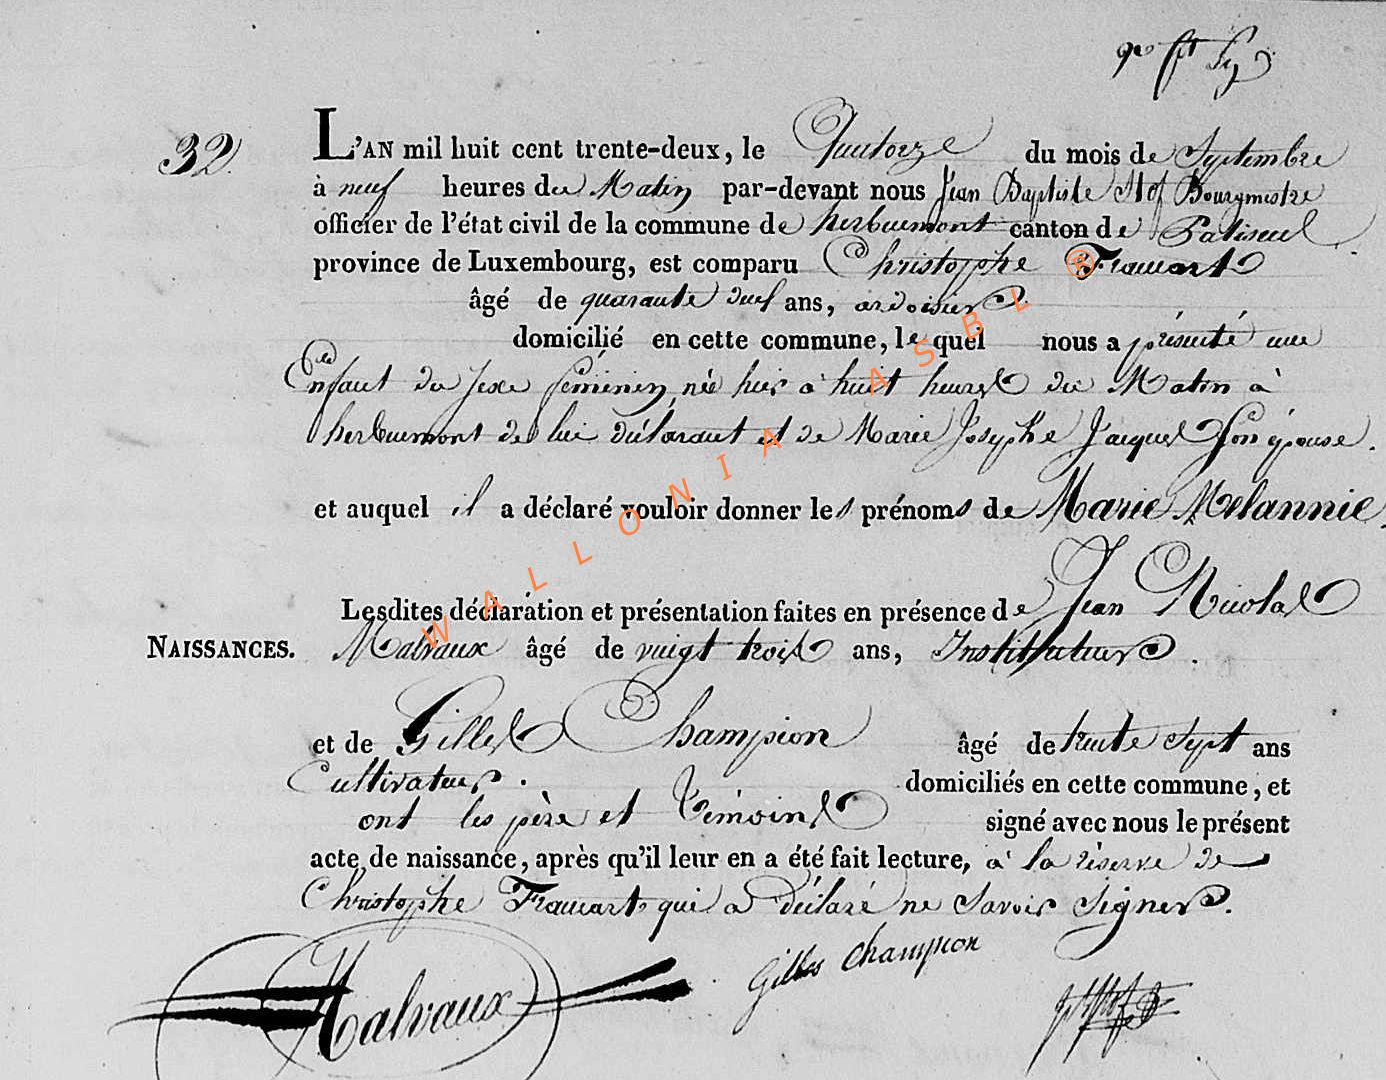 32.
L'AN mil huit cent trente-deux, le Quatorze du mois de Septembre
à neuf heures du Matin par-devant nous Jean Baptiste Bourgmestre
officier de l'état civil de la commune de herbeumont canton de Paliseul
province de Luxembourg, est comparu Christophe Frauart
âgé de quarante deux ans, ardoisier
domicilié en cette commune, le quel nous a présenté une
Enfant du Sexe féminin, née hier à huit heures du Matin à
herbeumont de lui déclarant et de Marie Josephe Jacques Son épouse.
et auquel il a déclaré vouloir donner les prénoms de Marie Melannie.
Lesdites déclaration et présentation faites en présence de Jean Nicolas
NAISSANCES. Malvaux âgé de vingt trois ans, Instituteur.
et de Gilles Champion âgé de trente Sept ans
Cultivateur. domiciliés en cette commune, et
ont les père et témoins signé avec nous le présent
acte de naissance, après qu'il leur en a été fait lecture, à la réserve de
Christophe Frauart qui a déclaré ne Savoir Signer.
Malvaux Gilles Champion
WALLONIA ASBL ®